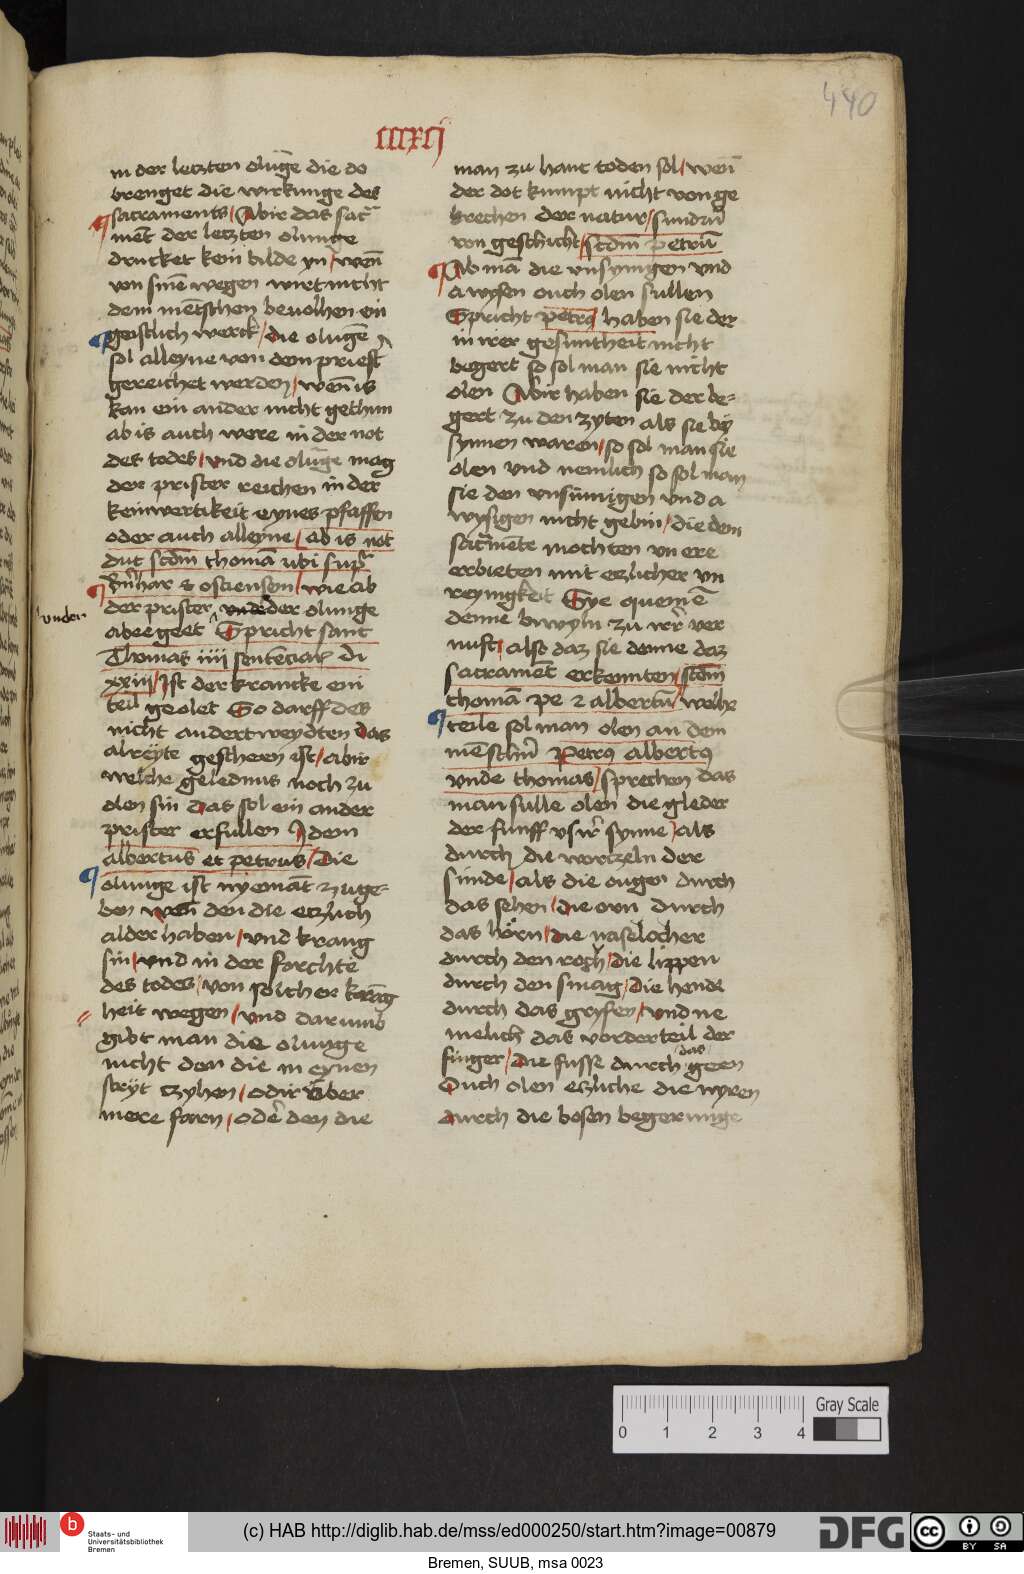 440
cccxcij
in der letzten olūge die do
brenget die wirkunge des
sacraments / Abir das sacͬ
mēt der letzten olunge
drucket kein bilde yn / wen̄
von sinē wegen wirt nicht
dem mētschen bevolhen ein
geistlich werck / die olugē
sol alleyne von dem priest
gereichet werden / wen̄ is
kan ein ander nicht gethun
ab is auch were in der not
des todes / vnd die olūge mag
der prister reichen in der
keinwertikeit eynes pfaffen
oder auch alleyne / ab is not
dut scdm̄ thomā ubi supͣ
bn̄har & ostiensem / wie ab
der prister vnde der olunge
vnder
abeegeet Spricht sant
Thomas iiii sentenciaꝝ di
xxiii / Ist der krancke ein
teil geolet So darff des
nicht andertweydten das
alreyte gescheen ist / abir
welche geledmis noch zu
olen sin Das sol ein ander
prister erfullen Idem
albertus et petrus / Die
olunge ist nyemāt zuge-
ben wen̄ den die etzlich
alder haben / vnd krang
sin / vnd in der forchte
des todes / von solcher krāg
heit wegen / vnd darumb
gibt man die olunge
nicht den die in eynen
strijt czyhen / odir vber
mere farn / odē den die
man zu hant toden sol / wen̄
der dot kumpt nicht von ge
brechen der natur / sundrū
von geschicht / scdm̄ petrū
Ab mā die vnsynigen vnd
awysen ouch olen sullen
Spricht petrꝰ / haben sie der
in irer gesuntheit nicht
begert so sol man sie nicht
olen Abir haben sie der be-
gert zu den zyten als sie by
synnen waren / so sol man sie
olen vnd nemlich so sol man
sie den vnsinnigen vnd a
wysigen nicht gebin / die dem
sacͬmēte mochten vnere
erbieten mit etzlicher vn
reynigkeit Sye quemē
denne biwyln zu irͬ ver
nuft / also daz sie denne daz
sacramēt erkennten / scdm̄
thomā pe & albertū / welhe
teile sol man olen an dem
menschin̄ Petrꝰ albertꝰ
vnde thomas / sprechen das
man sulle olen die gleder
der funff vsirͬ synne / als
durch die wortzeln der
sunde / als die ougen durch
das sehen / die orn durch
das hörn / die naselöcher
durch den roch / die lippen
durch den smag / die hende
durch das gryfen / vnd ne
melich das vorderteil der
finger / die fusse durch das geen
Ouch olen etzliche die nyren
durch die bosen begerunge
0 1 2 3 4
Gray Scale
b
Staats- und
Universitätsbibliothek
Bremen
(c) HAB http://diglib.hab.de/mss/ed000250/start.htm?image=00879
DFG
cc
BY SA
Bremen, SUUB, msa 0023